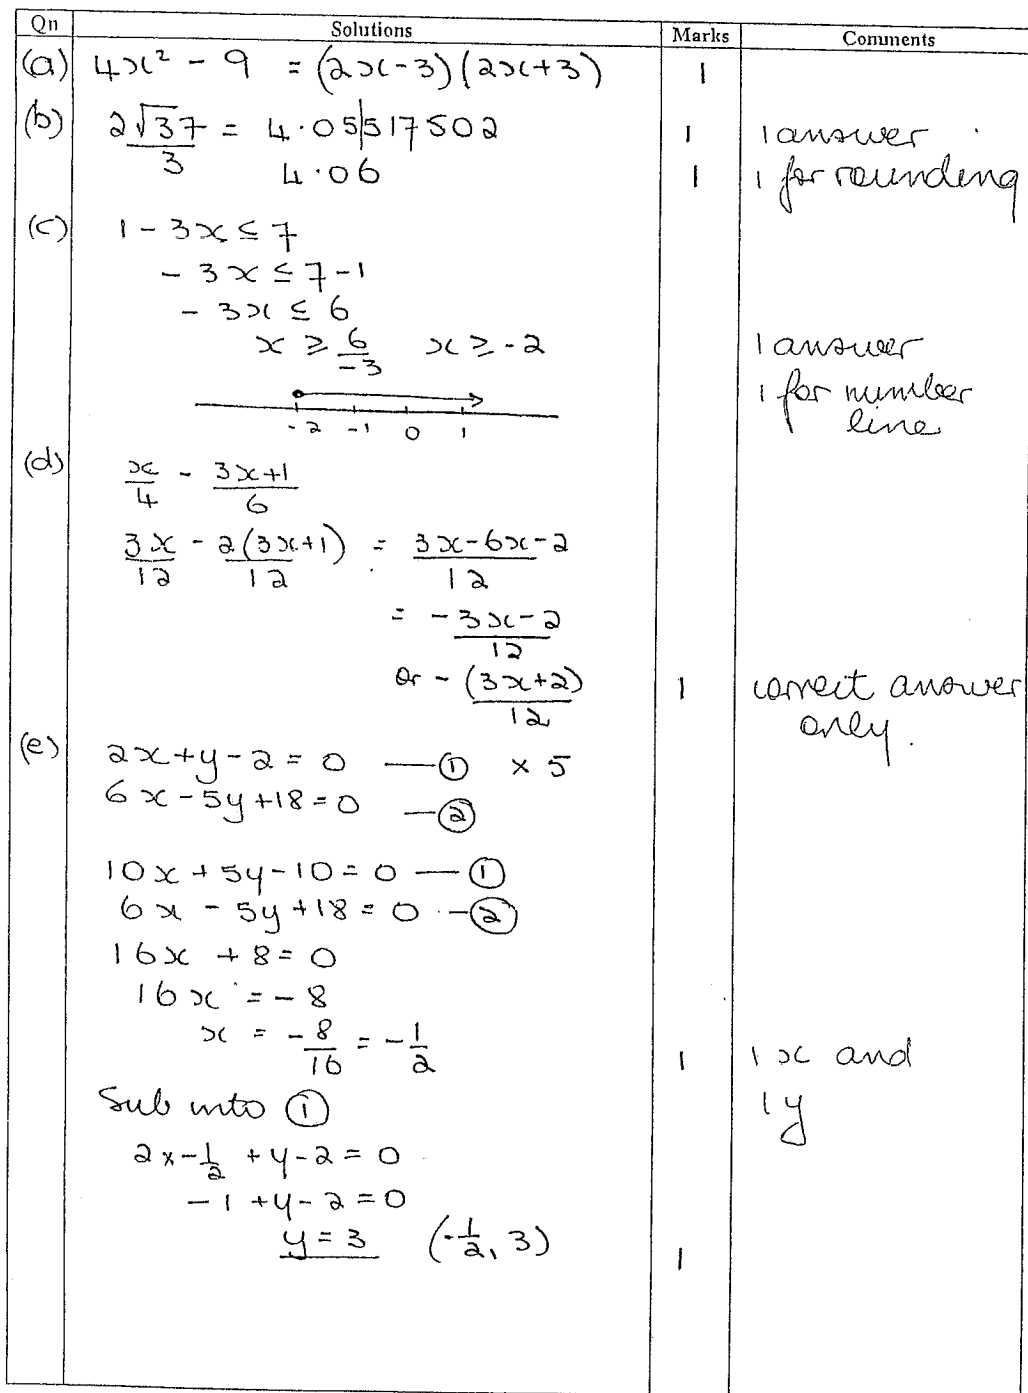 Qn Solutions Marks Comments
(a) 4x² - 9 = (2x-3)(2x+3) 1
(b) 2√37/3 = 4.05|517502 1 1 answer
4.06 1 1 for rounding
(c) 1 - 3x ≤ 7
- 3x ≤ 7-1
- 3x ≤ 6
x ≥ 6/-3 x ≥ -2 1 answer
1 for number
line
-2 -1 0 1
(d) x/4 - (3x+1)/6
3x/12 - 2(3x+1)/12 = (3x-6x-2)/12
= (-3x-2)/12
or -(3x+2)/12 1 correct answer
only.
(e) 2x+y-2=0 —① × 5
6x-5y+18=0 —②
10x+5y-10=0 —①
6x-5y+18=0 -②
16x + 8 = 0
16x = -8
x = -8/16 = -1/2 1 1 x and
1 y
Sub into ①
2×-1/2 + y-2 = 0
-1 + y-2 = 0
y = 3 (-1/2, 3) 1